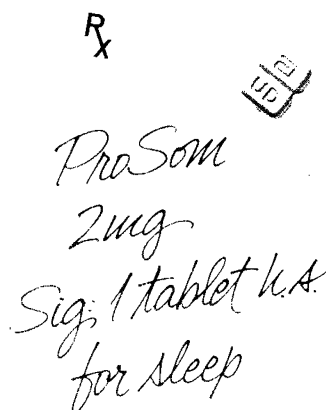 Rx
UD 2
ProSom
2mg
Sig: 1 tablet h.s.
for sleep